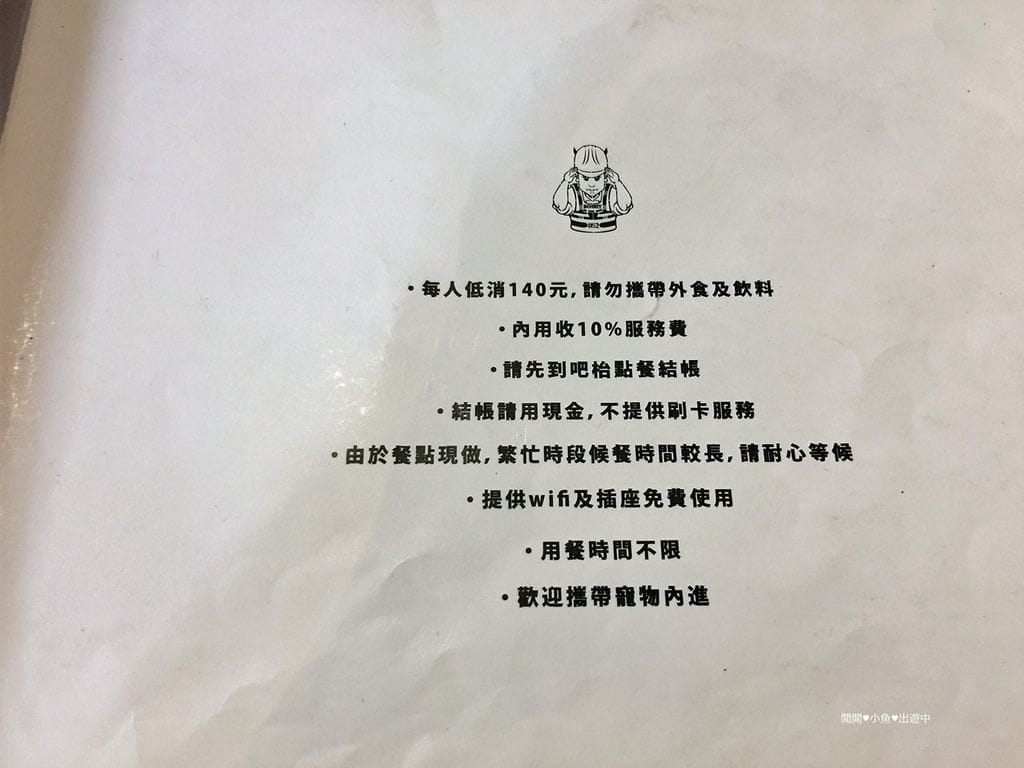 •每人低消140元,請勿攜帶外食及飲料
•內用收10%服務費
•請先到吧枱點餐結帳
•結帳請用現金,不提供刷卡服務
•由於餐點現做,繁忙時段候餐時間較長,請耐心等候
•提供wifi及插座免費使用
•用餐時間不限
•歡迎攜帶寵物內進
閒閒♥小魚♥出遊中